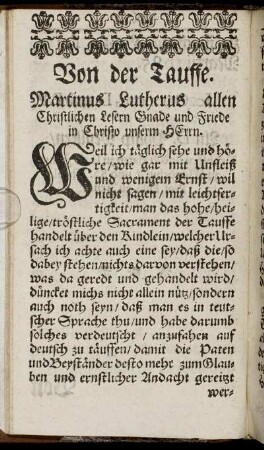 Von der Tauffe.
Martinus Lutherus allen
Christlichen Lesern Gnade und Friede
in Christo unserm HErrn.
Weil ich täglich sehe und hö-
re / wie gar mit Unfleiß
und wenigem Ernst / wil
nicht sagen / mit leichtfer-
tigkeit / man das hohe / hei-
lige / tröstliche Sacrament der Tauffe
handelt über den Kindlein / welcher Ur-
sach ich achte auch eine sey / daß die / so
dabey stehen / nichts darvon verstehen /
was da geredt und gehandelt wird /
düncket michs nicht allein nütz / sondern
auch noth seyn / daß man es in teut-
scher Sprache thu / und habe darumb
solches verdeutscht / anzufahen auf
deutsch zu täuffen / damit die Paten
und Beyständer desto mehr zum Glau-
ben und ernstlicher Andacht gereizt
wer-